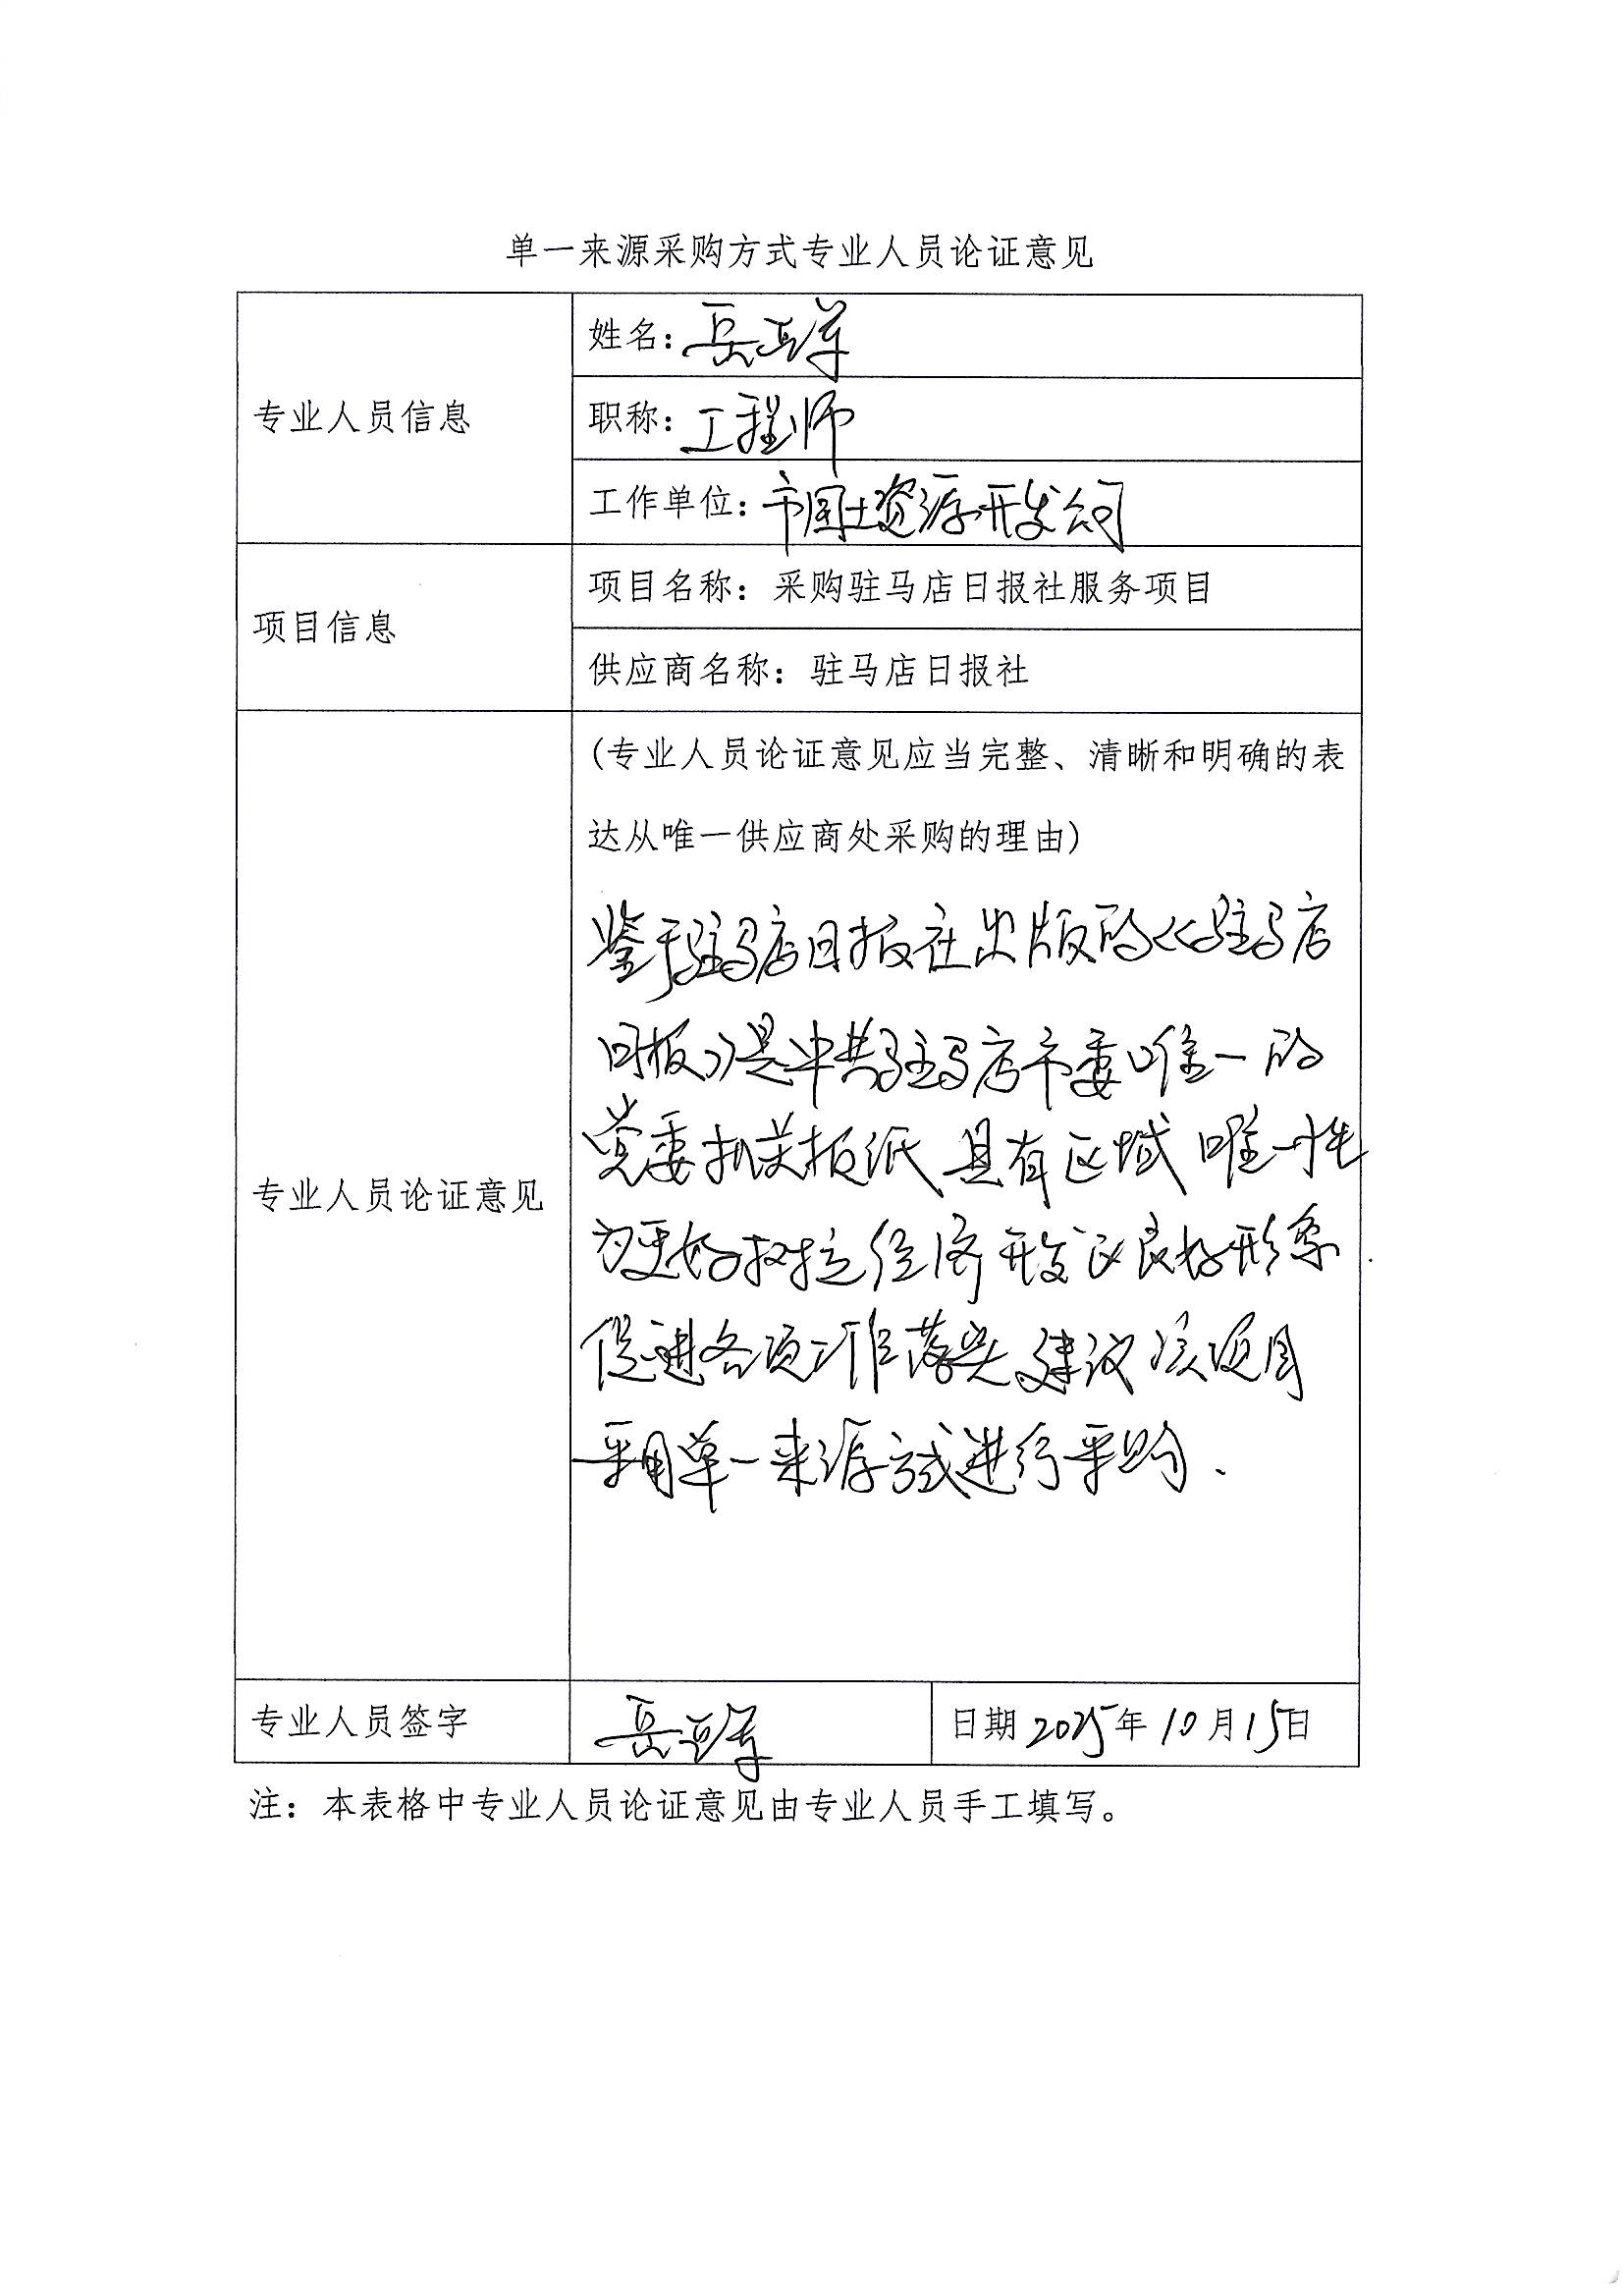 单一来源采购方式专业人员论证意见
专业人员信息
姓名：岳
职称：工程师
工作单位：市国土资源开发公司
项目信息
项目名称：采购驻马店日报社服务项目
供应商名称：驻马店日报社
专业人员论证意见
(专业人员论证意见应当完整、清晰和明确的表
达从唯一供应商处采购的理由)
鉴于驻马店日报社出版的《驻马店
日报》是中共驻马店市委唯一的
党委机关报纸 具有区域唯一性
为更好树立经济开发区良好形象
促进各项工作落实 建议该项目
采用单一来源方式进行采购.
专业人员签字
岳
日期 2025年10月15日
注：本表格中专业人员论证意见由专业人员手工填写。